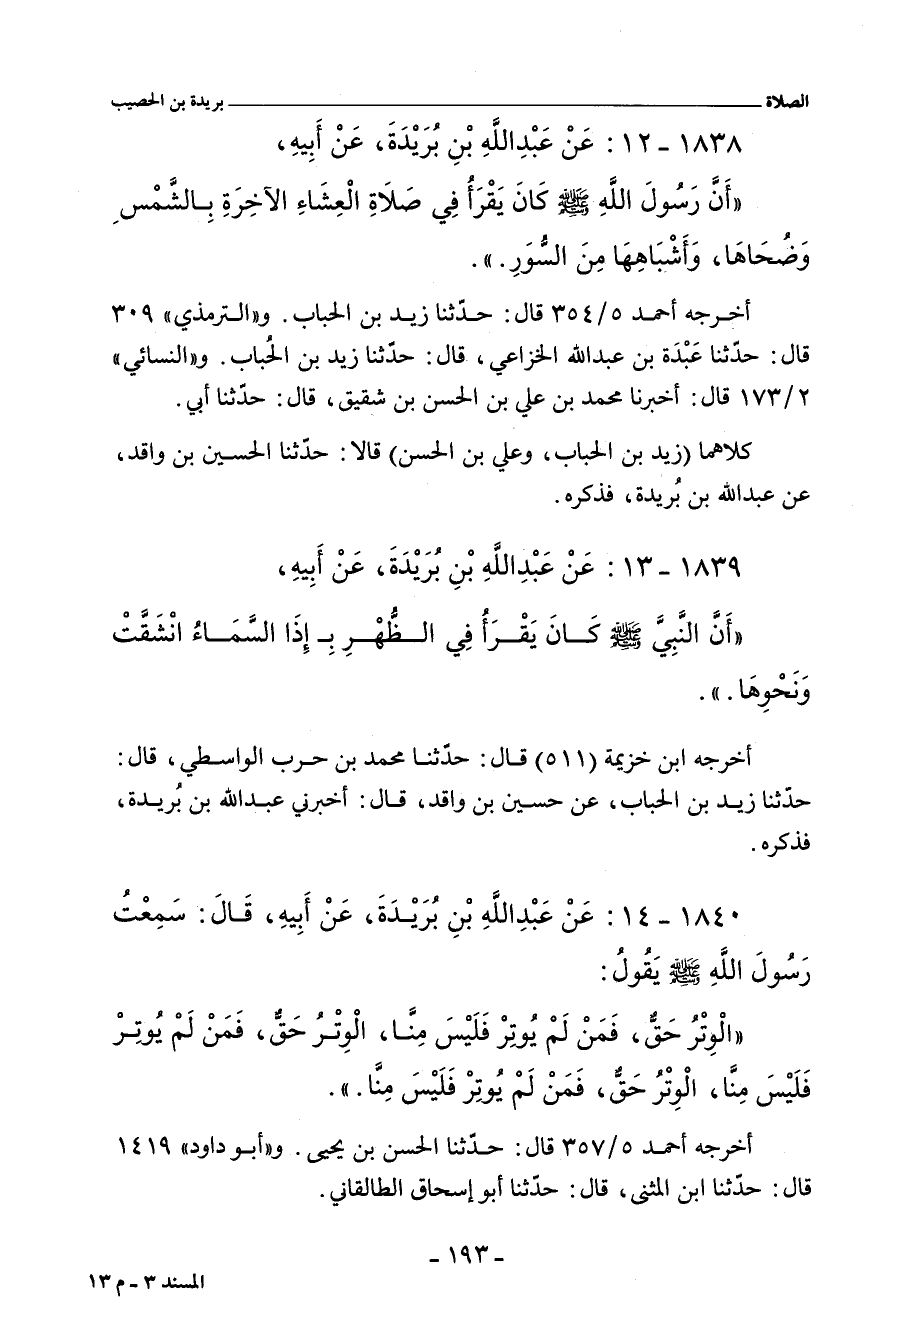 الصلاة ـــــــــــــــــــــــــــــــــــــــــ بريدة بن الحصيب
١٨٣٨ - ١٢ : عَنْ عَبْدِاللَّهِ بْنِ بُرَيْدَةَ، عَنْ أَبِيهِ،
«أَنَّ رَسُولَ اللَّهِ ﷺ كَانَ يَقْرَأُ فِي صَلَاةِ الْعِشَاءِ الآخِرَةِ بِالشَّمْسِ
وَضُحَاهَا، وَأَشْبَاهِهَا مِنَ السُّوَرِ.».
أخرجه أحمد ٣٥٤/٥ قال: حدّثنا زيد بن الحباب. و«الترمذي» ٣٠٩
قال: حدّثنا عَبْدَة بن عبدالله الخزاعي، قال: حدّثنا زيد بن الحُباب. و«النسائي»
١٧٣/٢ قال: أخبرنا محمد بن علي بن الحسن بن شقيق، قال: حدّثنا أبي.
كلاهما (زيد بن الحباب، وعلي بن الحسن) قالا: حدّثنا الحسين بن واقد،
عن عبدالله بن بُريدة، فذكره.
١٨٣٩ - ١٣ : عَنْ عَبْدِاللَّهِ بْنِ بُرَيْدَةَ، عَنْ أَبِيهِ،
«أَنَّ النَّبِيَّ ﷺ كَانَ يَقْرَأُ فِي الظُّهْرِ بِـ إِذَا السَّمَاءُ انْشَقَّتْ
وَنَحْوِهَا.».
أخرجه ابن خزيمة (٥١١) قال: حدّثنا محمد بن حرب الواسطي، قال:
حدّثنا زيد بن الحباب، عن حسين بن واقد، قال: أخبرني عبدالله بن بُريدة،
فذكره.
١٨٤٠ - ١٤ : عَنْ عَبْدِاللَّهِ بْنِ بُرَيْدَةَ، عَنْ أَبِيهِ، قَالَ: سَمِعْتُ
رَسُولَ اللَّهِ ﷺ يَقُولُ:
«الْوِتْرُ حَقٌّ، فَمَنْ لَمْ يُوتِرْ فَلَيْسَ مِنَّا، الْوِتْرُ حَقٌّ، فَمَنْ لَمْ يُوتِرْ
فَلَيْسَ مِنَّا، الْوِتْرُ حَقٌّ، فَمَنْ لَمْ يُوتِرْ فَلَيْسَ مِنَّا.».
أخرجه أحمد ٣٥٧/٥ قال: حدّثنا الحسن بن يحيى. و«أبو داود» ١٤١٩
قال: حدّثنا ابن المثنى، قال: حدّثنا أبو إسحاق الطالقاني.
- ١٩٣ -
المسند ٣ - م ١٣